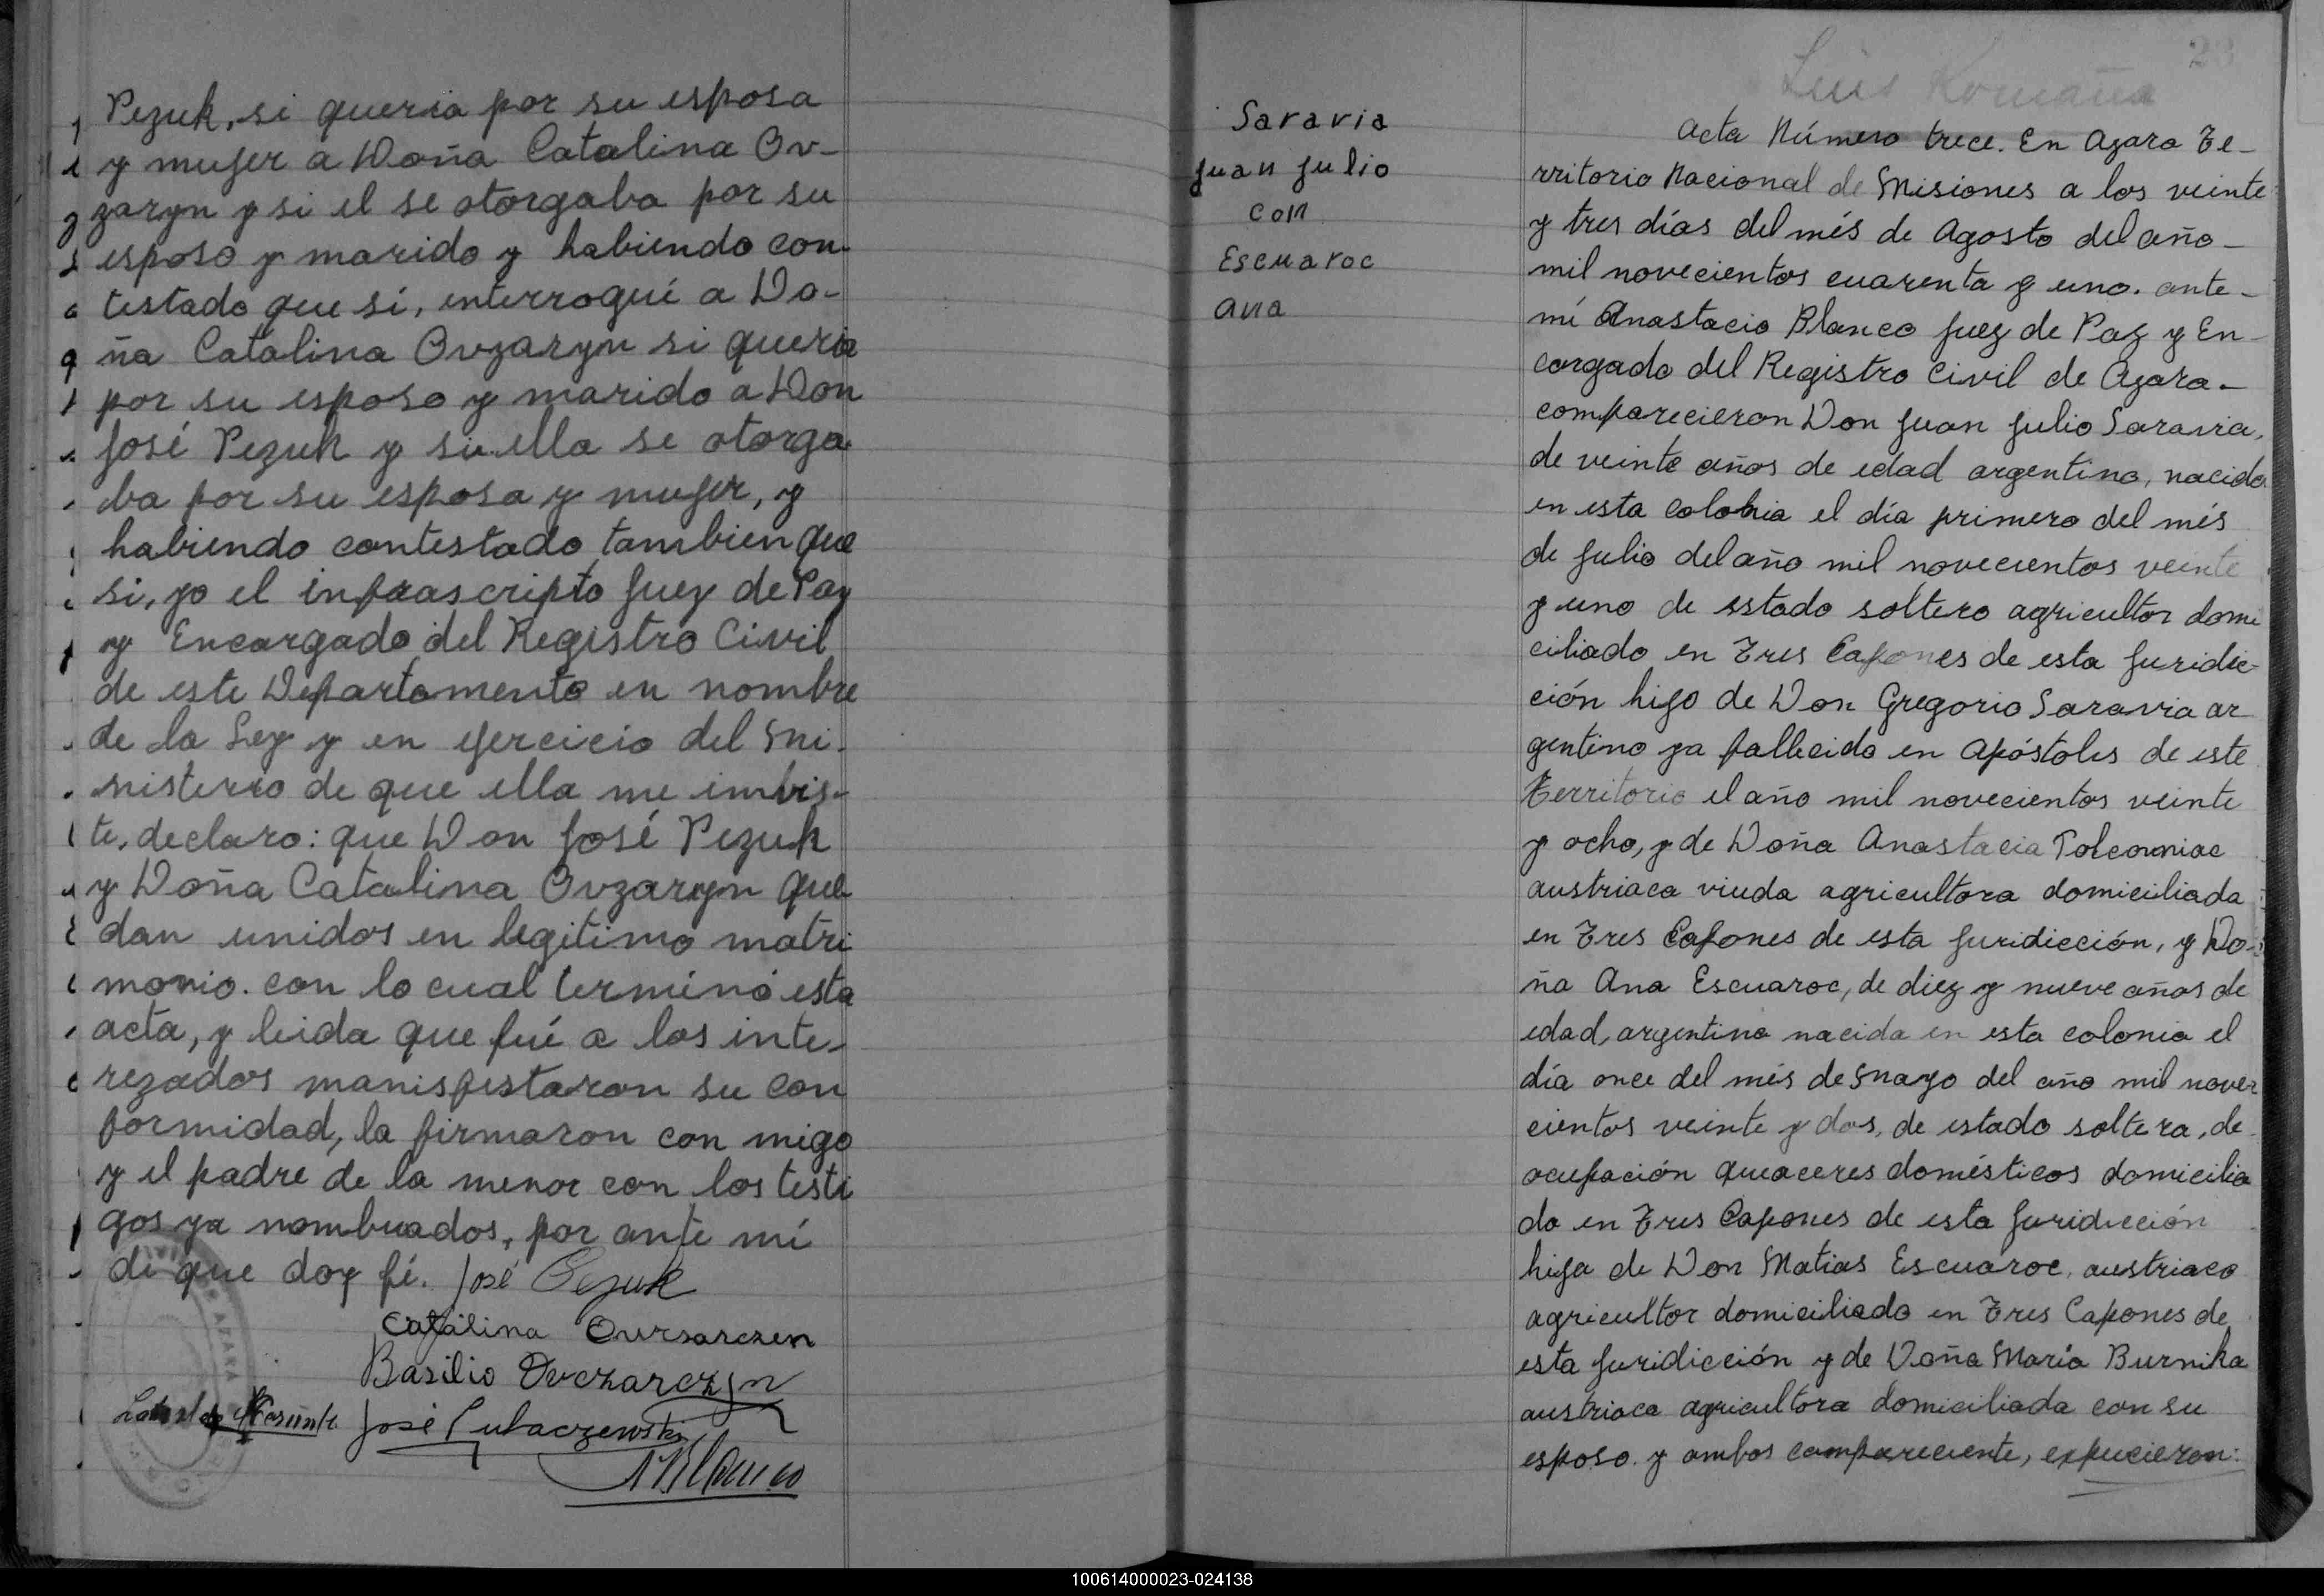 Pezuk, si queria por su esposa
y mujer a Doña Catalina Ov-
zaryn y si el se otorgaba por su
esposo y marido y habiendo con-
testado que si, interrogué a Do-
ña Catalina Ovzaryn si queria
por su esposo y marido a Don
José Pezuk y si ella se otorga
ba por su esposa y mujer, y
habiendo contestado tambien que
si, yo el infrascripto Juez de Paz
y Encargado del Registro Civil
de este Departamento en nombre
de la Ley y en ejercicio del Mi-
nisterio de que ella me invis-
te, declaro: que Don José Pezuk
y Doña Catalina Ovzaryn que
dan unidos en legitimo matri
monio. con lo cual terminó esta
acta, y leida que fué a los inte-
rezados manisfestaron su con
formidad, la firmaron con migo
y el padre de la menor con los testi
gos ya nombrados, por ante mí
de que doy fé. José Pezuk
Catalina Oursarczen
Basilio Owczarczyn
José Pulaczewski
ABlanco
Saravia
Juan Julio
con
Escuaroc
Ana
23
Luis Romaña
Acta Número trece. En Azara Te-
rritorio Nacional de Misiones a los veinte
y tres días del més de Agosto del año-
mil novecientos cuarenta y uno. ante-
mí Anastacio Blanco Juez de Paz y En-
cargado del Registro Civil de Azara-
comparecieron Don Juan Julio Saravia,
de veinte años de edad argentino, nacido
en esta colonia el día primero del més
de Julio del año mil novecientos veinte
y uno de estado soltero agricultor domi
ciliado en Tres Capones de esta Juridic-
ción hijo de Don Gregorio Saravia ar
gentino ya fallecido en Apóstoles de este
Territorio el año mil novecientos veinte
y ocho, y de Doña Anastacia Tolcowniac
austriaca viuda agricultora domiciliada
en Tres Capones de esta Juridicción, y Do-
ña Ana Escuaroc, de diez y nueve años de
edad, argentina nacida en esta colonia el
día once del més de Mayo del año mil nove-
cientos veinte y dos, de estado soltera, de
ocupación queaceres domésticos domicilia
da en Tres Capones de esta Juridicción
hija de Don Matias Escuaroc, austriaco
agricultor domiciliado en Tres Capones de
esta Juridicción y de Doña María Burnika
austriaca agricultora domiciliada con su
esposo. y ambos compareciente, expucieron:
100614000023-024138